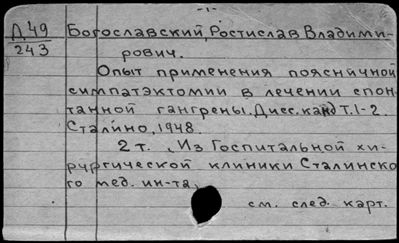 -1-
Д.49 Богославский, Ростислав Владими-
243 рович.
Опыт применения поясничной
симпатэктомии в лечении спон-
танной гангрены. Дисс. канд Т.1-2.
Сталино, 1948.
2 т. Из Госпитальной хи-
рургической клиники Сталинско-
го мед. ин-та.
см. след. карт.